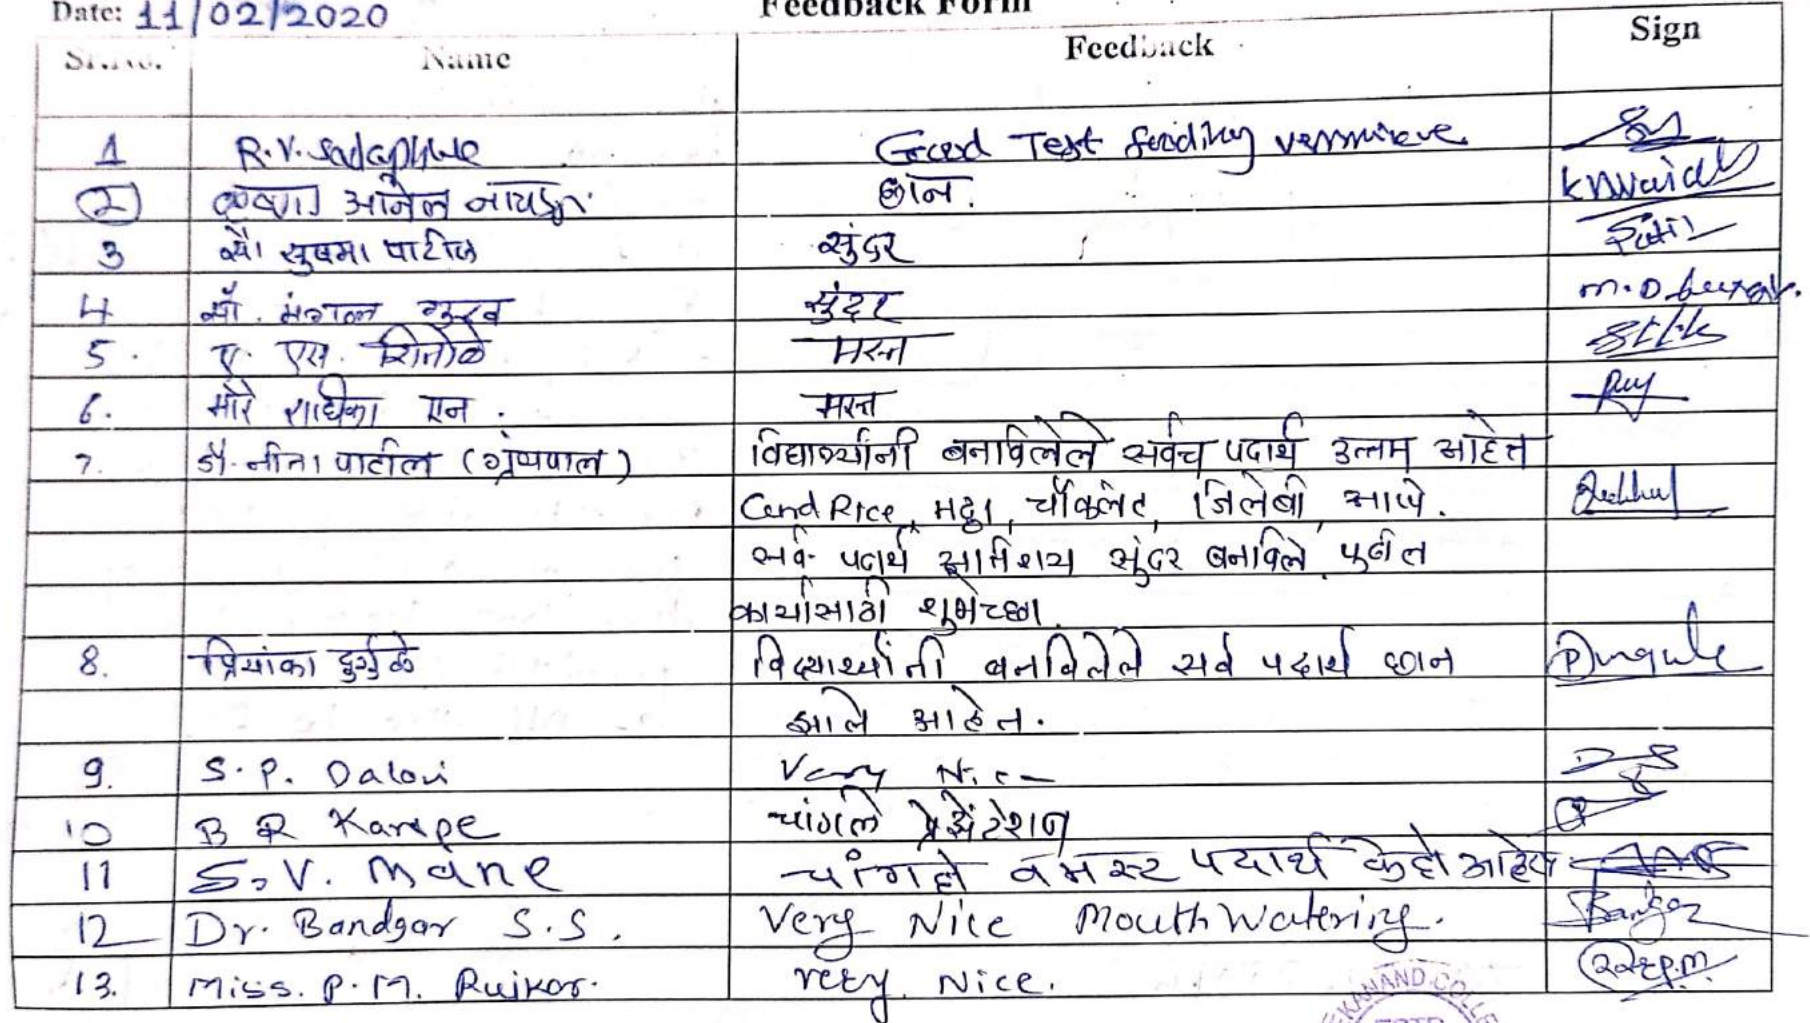 Date: 11/02/2020
Feedback Form
Sr.No. Name Feedback Sign
1 R.V. Good Test
2 अनिल छान.
3 सौ सुषमा पाटील सुंदर Patil
4 सौ. मंगल गुरव सुंदर
5. ए. एस. मस्त
6. मोरे राधिका एन. मस्त
7. डॉ. नीता पाटील (ग्रंथपाल) विद्यार्थ्यांनी बनाविलेले सर्वच पदार्थ उत्तम आहेत
Rice, मठ्ठा, चॉकलेट, जिलेबी
सर्व पदार्थ अतिशय सुंदर बनाविले पुढील
कार्यासाठी शुभेच्छा.
8. प्रियांका दुर्गुळे विद्यार्थ्यांनी बनविलेले सर्व पदार्थ छान
झाले आहेत.
9. S.P. Dalavi Very Nice
10 B R चांगले प्रेझेंटेशन
11 S.V. Mane पदार्थ
12 Dr. Bandgar S.S. Very Nice Mouth Watering. Bandgar
13. Miss. P.M. Rujkar. very Nice.